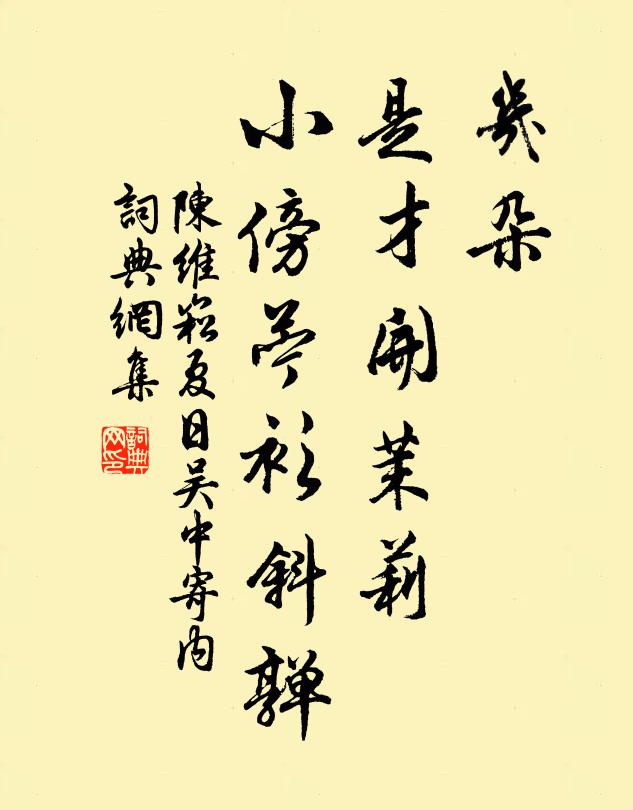 幾朵
是才開茉莉
小傍苧衫斜嚲
陳維崧夏日吳中寄內
詞典網集
詞典網印